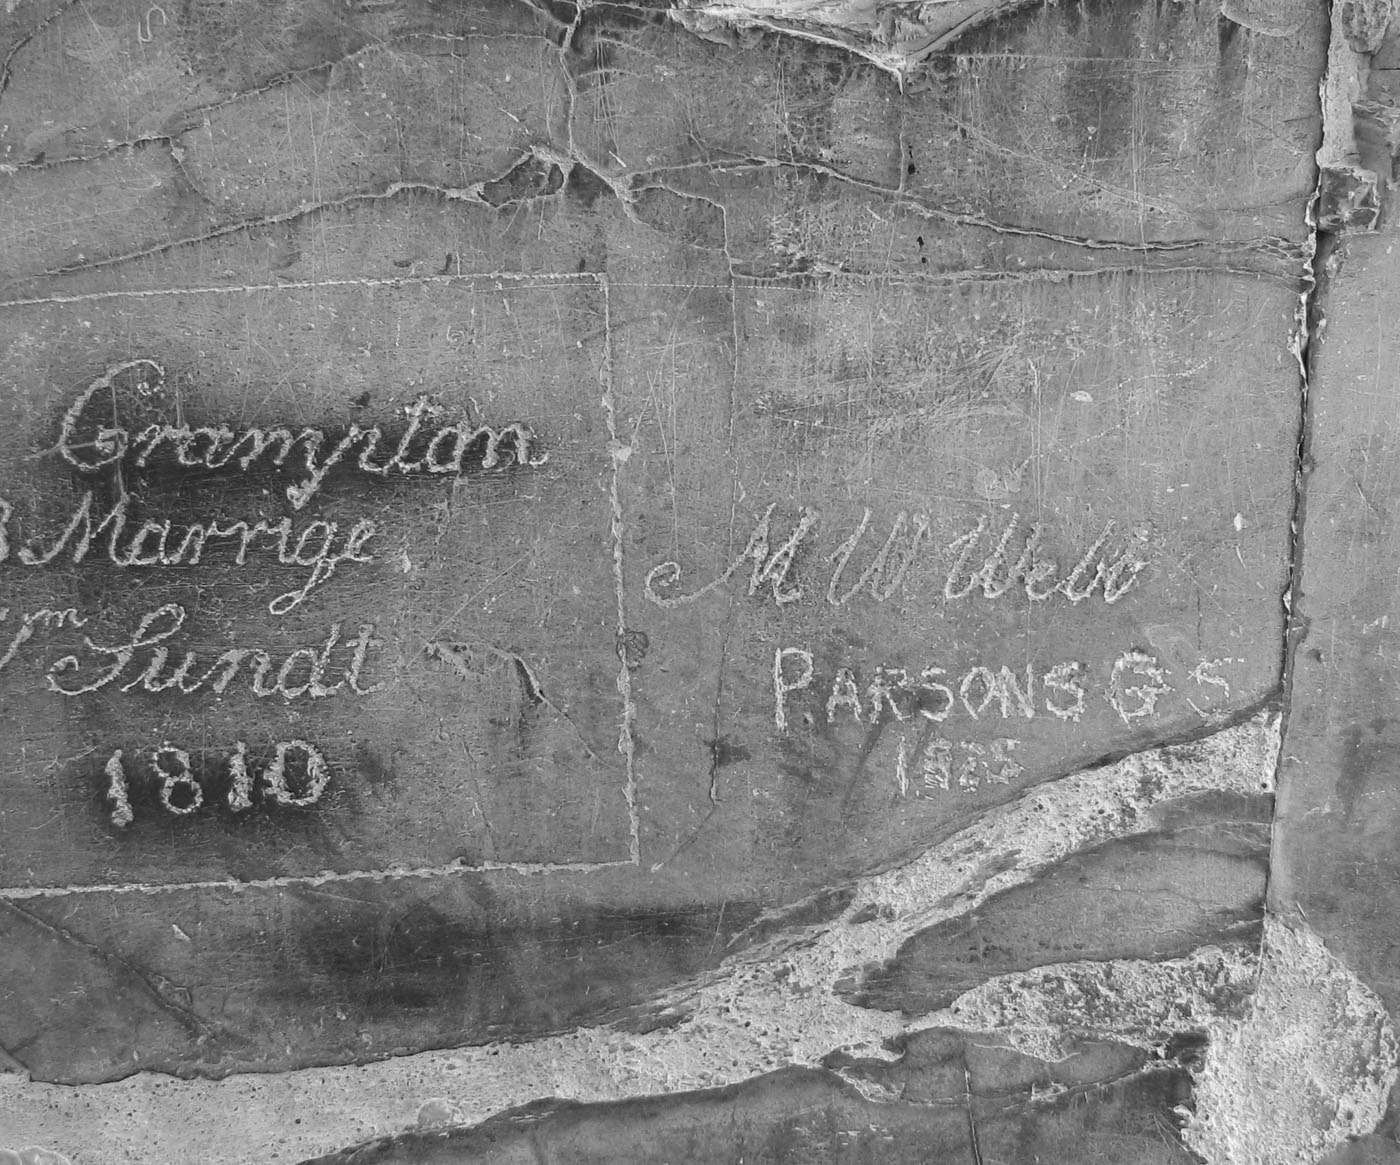 Crampton
B Marrige
Wm Lundt
1810
M W Webb
PARSONS G S